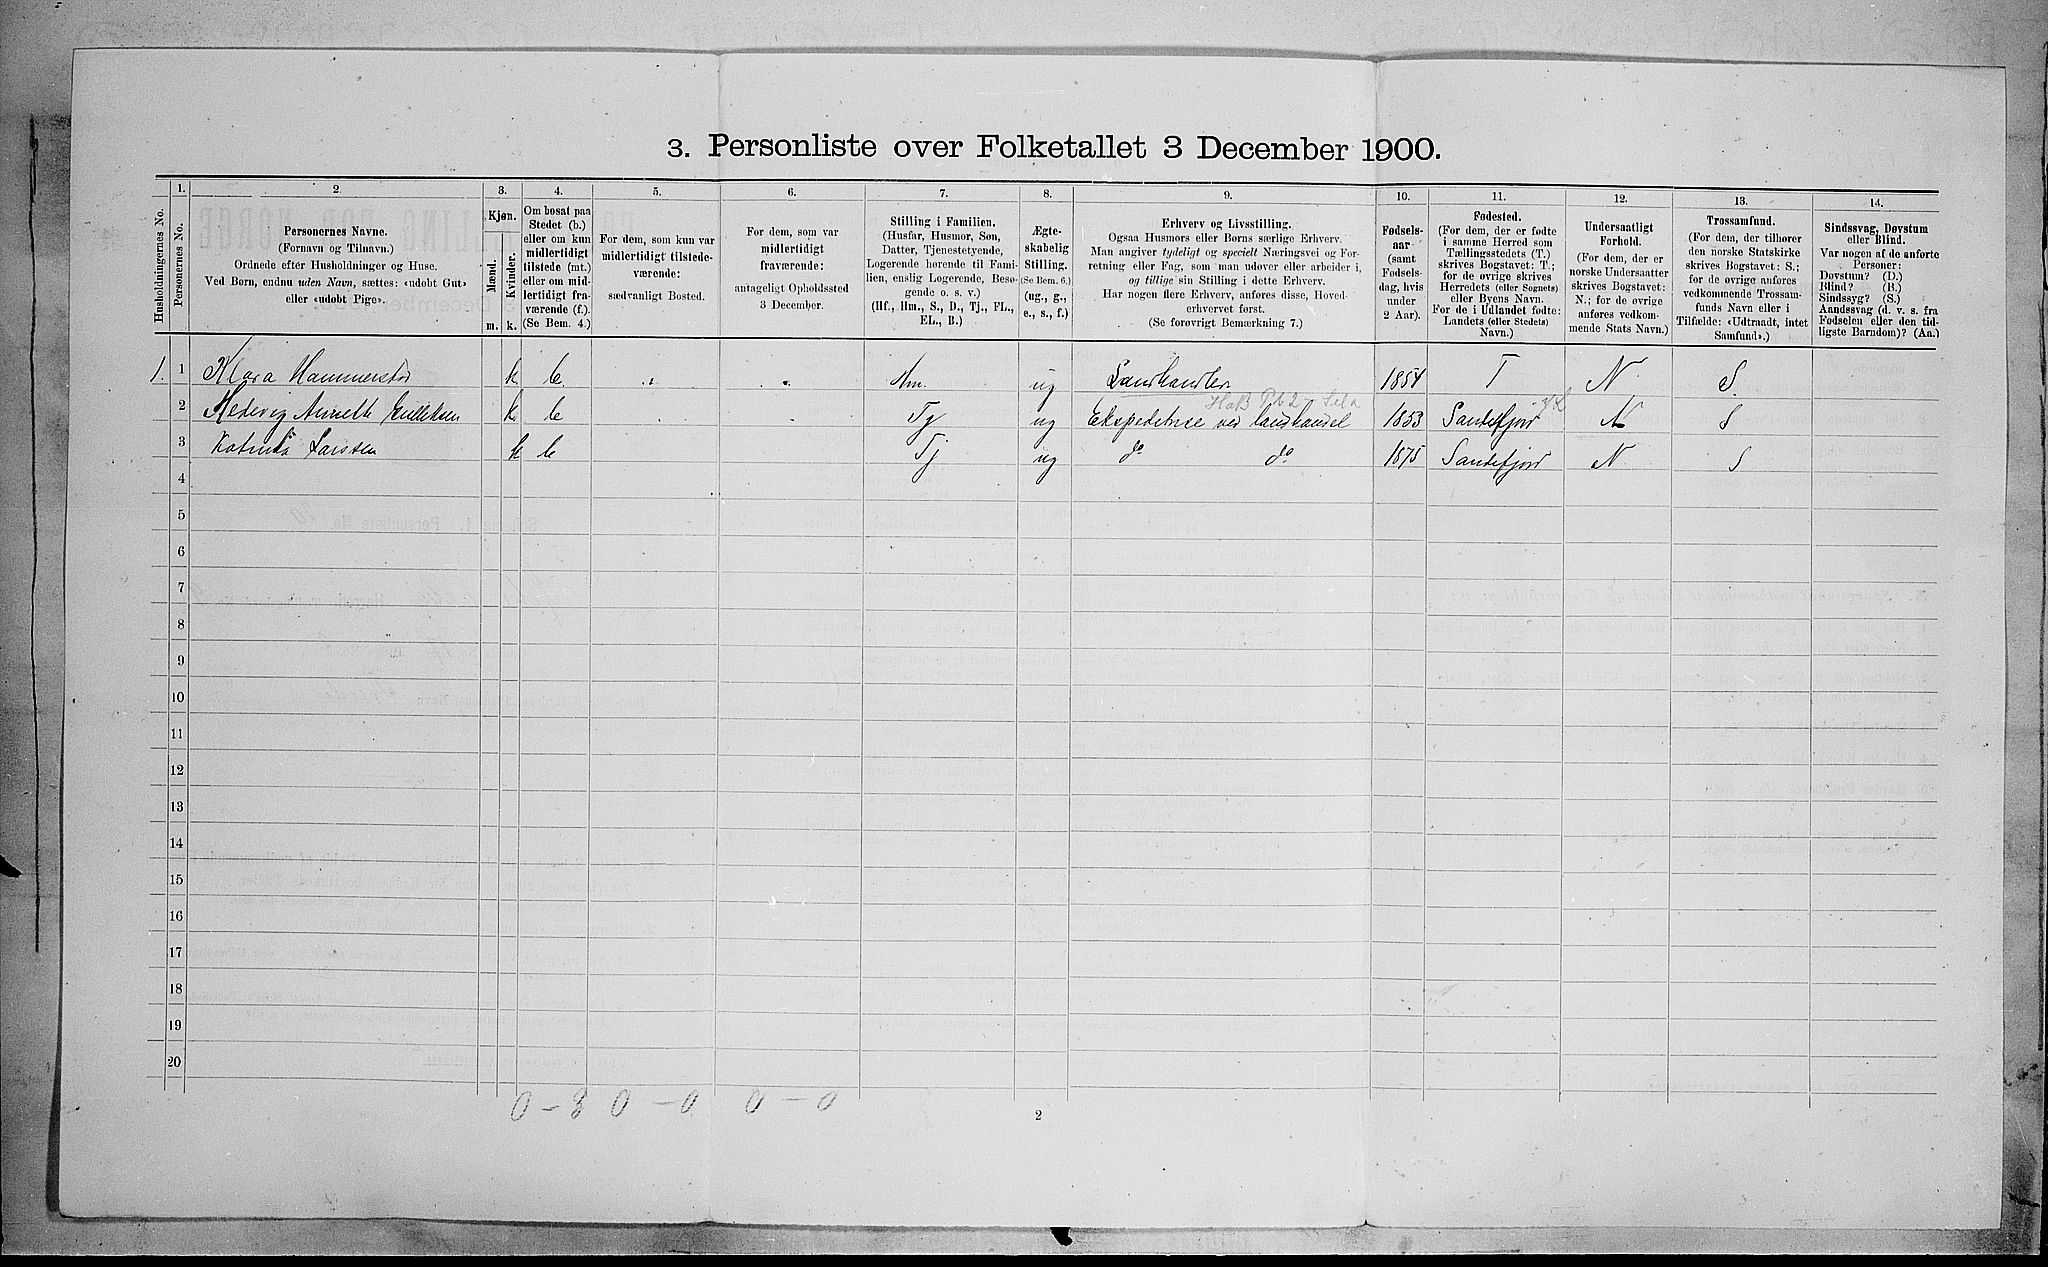 3. Personliste over Folketallet 3 December 1900.
Husholdningernes No.
1.
Personernes No.
2
Personernes Navne.
(Fornavn og Tilnavn.)
Ordnede efter Husholdninger og Huse.
Ved Børn, endnu uden Navn, sættes: «udøbt Gut»
eller «udøbt Pige».
3.
Kjøn.
Mænd.
Kvinder.
m.
k.
4.
Om bosat paa
Stedet (b.)
eller om kun
midlertidigt
tilstede (mt.)
eller om mid-
lertidigt fra-
værende (f.).
(Se Bem. 4.)
5.
For dem, som kun var
midlertidigt tilstede-
værende:
sædvanligt Bosted.
6.
For dem, som var
midlertidigt
fraværende:
antageligt Opholdssted
3 December.
7.
Stilling i Familien.
(Husfar, Husmor, Søn,
Datter, Tjenestetyende,
Logerende hørende til Fami-
lien, enslig Logerende, Besø-
gende o. s. v.)
(Hf., Hm., S., D., Tj., FL.,
EL., B.)
8.
Ægte-
skabelig
Stilling.
(Se Bem. 6.)
(ug., g.,
e., s., f.)
9.
Erhverv og Livsstilling.
Ogsaa Husmors eller Børns særlige Erhverv.
Man angiver tydeligt og specielt Næringsvei og For-
retning eller Fag, som man udøver eller arbeider i,
og tillige sin Stilling i dette Erhverv.
Har nogen flere Erhverv, anføres disse, Hoved-
erhvervet først.
(Se forøvrigt Bemærkning 7.)
10.
Fødsels-
aar
(samt
Fødsels-
dag, hvis
under
2 Aar).
11.
Fødested.
(For dem, der er fødte
i samme Herred som
Tællingsstedets (T.)
skrives Bogstavet: T.;
for de øvrige skrives
Herredets (eller Sognets)
eller Byens Navn.
For de i Udlandet fødte:
Landets (eller Stedets)
Navn.)
12.
Undersaatligt
Forhold.
(For dem, der er
norske Undersaatter
skrives Bogstavet:
N.; for de øvrige
anføres vedkom-
mende Stats Navn.)
13.
Trossamfund.
(For dem, der tilhører
den norske Statskirke
skrives Bogstavet: S.;
for de øvrige anføres
vedkommende Trossam-
funds Navn eller i
Tilfælde: «Udtraadt, intet
Samfund».)
14.
Sindssvag, Døvstum
eller Blind.
Var nogen af de anførte
Personer:
Døvstum? (D.)
Blind? (B.)
Sindssyg? (S.)
Aandssvag (d. v. s. fra
Fødselen eller den tid-
ligste Barndom)? (Aa.)
1. 1 Klara Hammerstad k b Hm. ug Landhandler 1854 T N S.
2 Hedevig Annette Gulliksen k b Tj ug Ekspeditrice ved landhandel 1853 Sandefjord N S
3 Katinka Larssen k b Tj ug do do 1875 Sandefjord N S
4
5
6
7
8
9
10
11
12
13
14
15
16
17
18
19
20
0 - 3 0 - 0 0 - 0
2